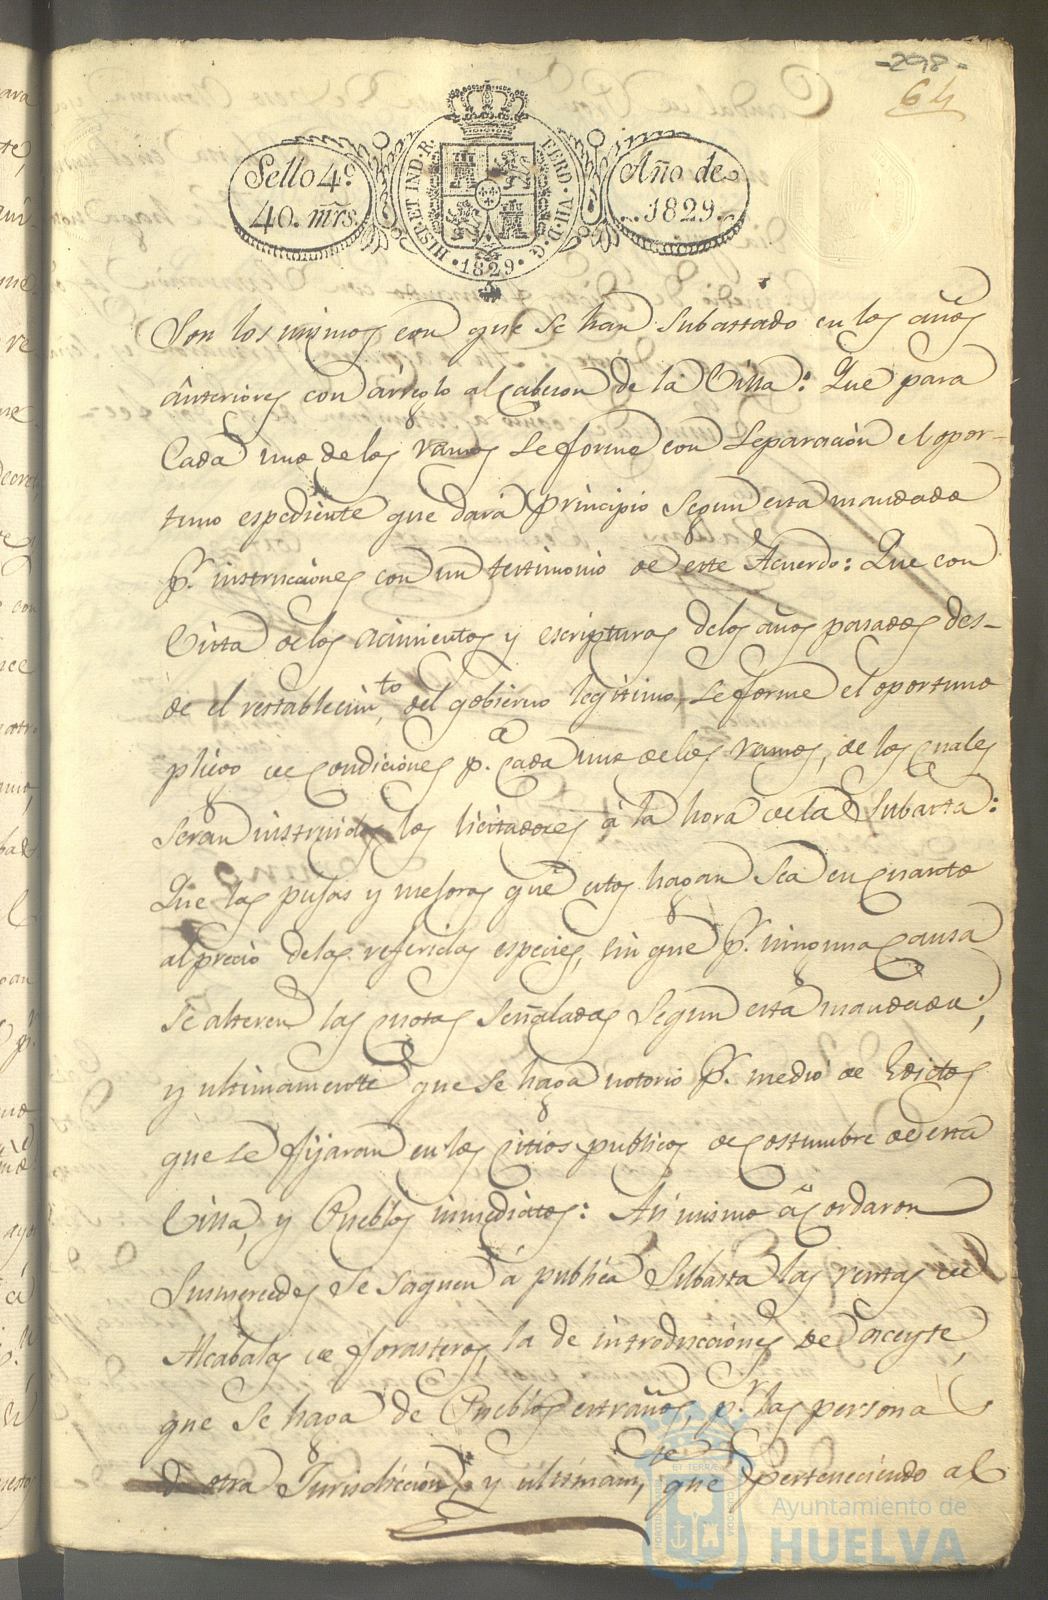 -298-
64
Sello 4º
40. mrs.
HISP. ET IND. R. FERD. VII. D. G.
1829
Año de
1829.
Son los mismos con que se han subastado en los años
anteriores con arreglo al cabezon de la Villa: Que para
Cada uno de los ramos se forme con separacion el opor-
tuno espediente que dará principio segun está mandado
pr. instrucciones con un testimonio de este Acuerdo: Que con
Vista de los acimientos y escripturas de los años pasados des-
de el restablecimto. del gobierno legitimo, se forme el oportuno
pliego de condiciones pa. cada uno de los ramos, de los cuales
seran instruidos los licitadores á la hora de la Subasta:
Que las pujas y mejoras que estos hagan sea en cuanto
al precio de las referidas especies, sin que pr. ninguna causa
se alteren las cuotas señaladas segun está mandado;
y ultimamente que se haga notorio pr. medio de Edictos
que se fijaran en los sitios publicos de costumbre de esta
Villa, y Pueblos inmediatos: Asi mismo acordaron
Susmercedes se saquen á publica Subasta las rentas de
Alcabalas de forasteros, la de introducciones de aceyte,
que se haga de Pueblos estraños, pr. las persona
d otra Jurisdiccion y ultimamte, que perteneciendo al
Ayuntamiento de
HUELVA